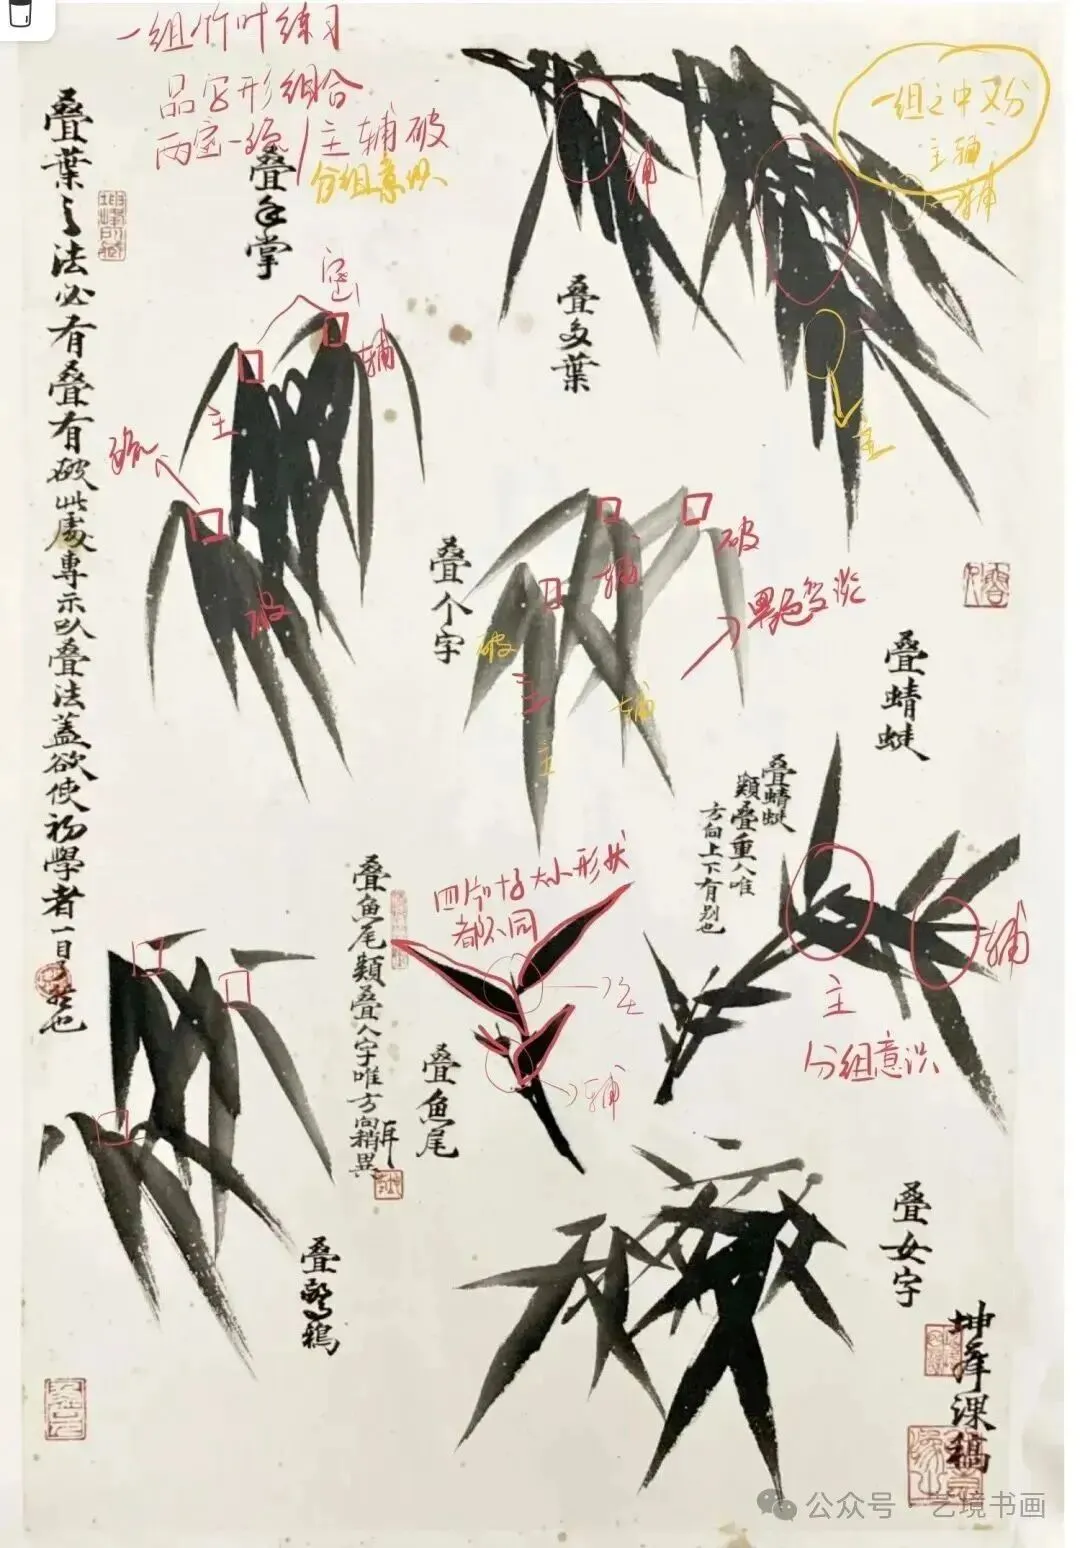 一组竹叶练习
品字形组合
两密一疏/主辅破
分组意识
叠葉之法必有叠有破此處專示以叠法蓋欲使初學者一目了然也
叠手掌
密
辅
主
疏
破
叠多葉
辅
一组之中又分
主辅
辅
主
叠个字
破
辅
破
主
辅
主
墨色变淡
叠蜻蜓
叠蜻蜓
類叠重人唯
方向上下有别也
主
辅
分组意识
叠魚尾類叠人字唯方向稍異耳
四片叶子大小形状
都不同
主
辅
叠魚尾
叠驚鴉
叠女字
坤峰课稿
公众号·艺境书画